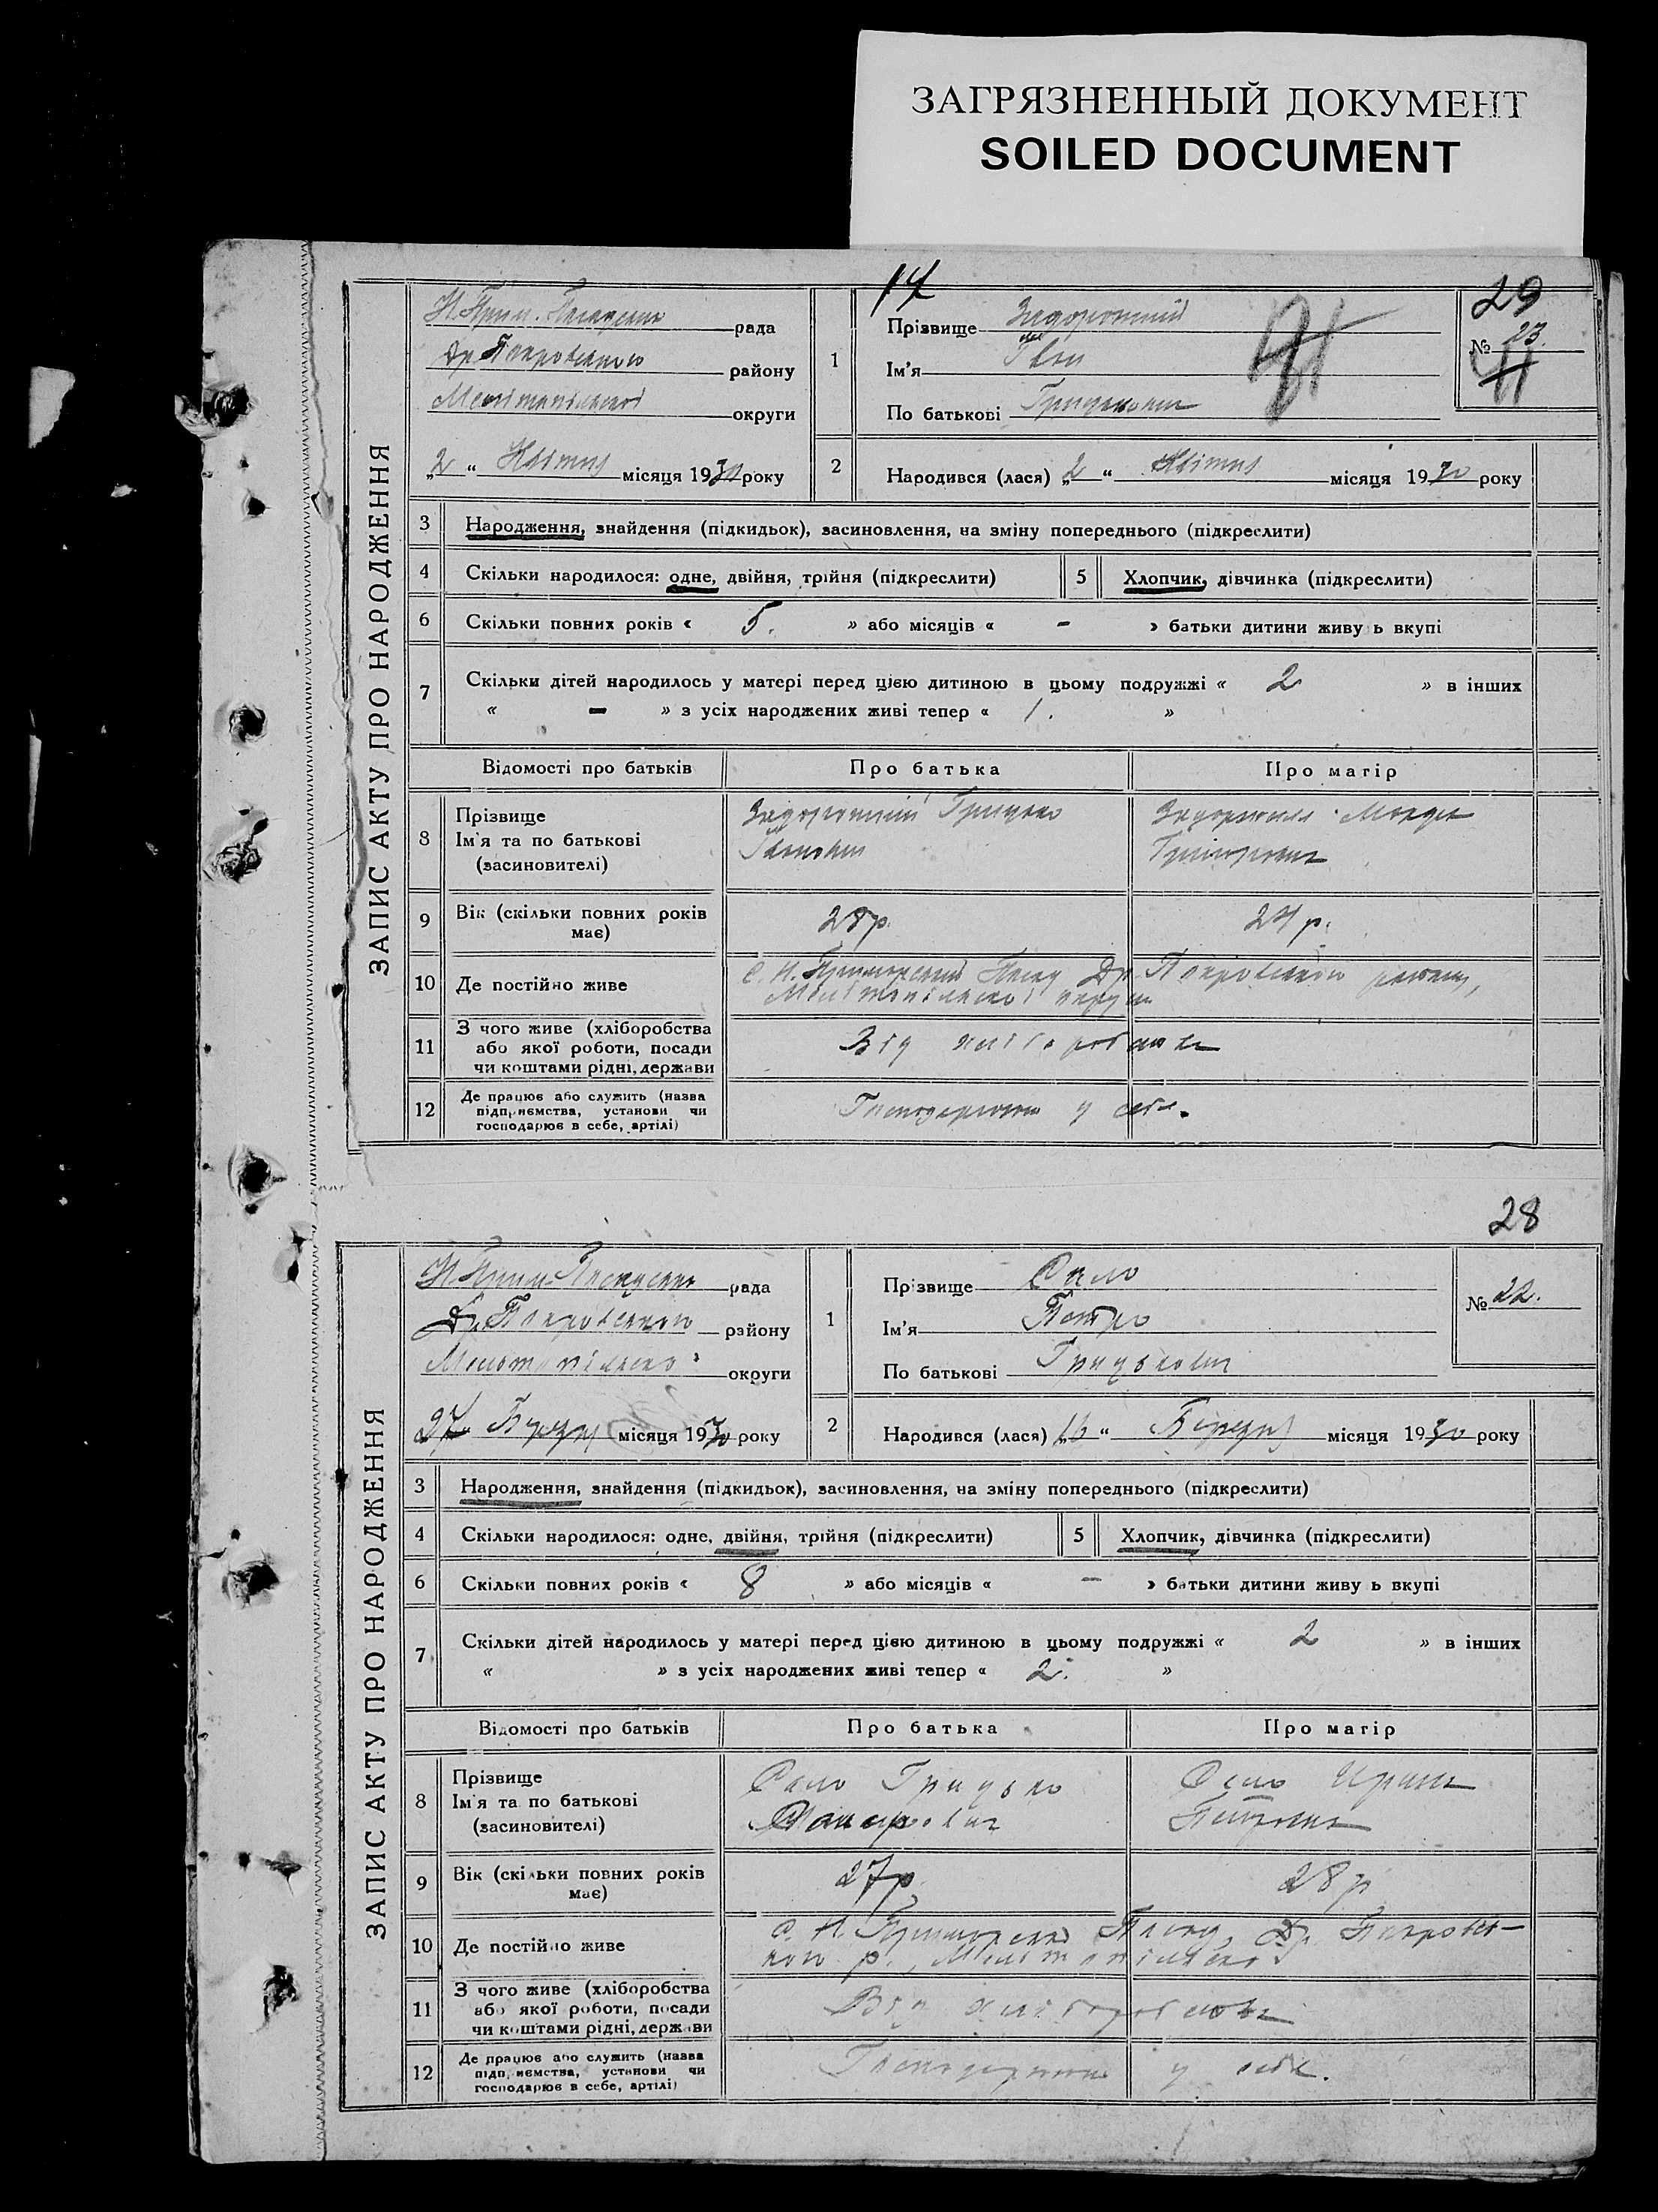 ЗАГРЯЗНЕННЫЙ ДОКУМЕНТ
SOILED DOCUMENT
ЗАПИС АКТУ ПРО НАРОДЖЕННЯ
14
29
Н. Прим. рада
Др. Покровського району
Мелітопільської округи
„2“ Квітня місяця 1930 року
1
Прізвище Задорожній
Ім'я Іван
По батькові Грицькович
№ 23.
2
Народився (лася) „2“ Квітня місяця 1930 року
3 Народження, знайдення (підкидьок), засиновлення, на зміну попереднього (підкреслити)
4 Скільки народилося: одне, двійня, трійня (підкреслити) 5 Хлопчик, дівчинка (підкреслити)
6 Скільки повних років « 5. » або місяців « - » батьки дитини живу ь вкупі
7 Скільки дітей народилось у матері перед цією дитиною в цьому подружжі « 2 » в інших
« - » з усіх народжених живі тепер « 1. »
Відомості про батьків Про батька Про матір
8 Прізвище Ім'я та по батькові (засновителі)
Задорожній Грицько Іванович
Задорожня Григоровна
9 Вік (скільки повних років має) 28 р. 24 р.
10 Де постійно живе С. Н. Приморський Посад Др. Покровського району,
Мелітопільської округи
11 З чого живе (хліборобства або якої роботи, посади чи коштами рідні, держави
Від хліборобства
12 Де працює або служить (назва підприємства, установи чи господарює в себе, артілі)
Господарюють у себе.
28
ЗАПИС АКТУ ПРО НАРОДЖЕННЯ
Н. Прим. рада
Др. Покровського району
Мелітопільської округи
27 Березня місяця 1930 року
1
Прізвище Сало
Ім'я Петро
По батькові Грицькович
№ 22.
2
Народився (лася) „16“ Березня місяця 1930 року
3 Народження, знайдення (підкидьок), засиновлення, на зміну попереднього (підкреслити)
4 Скільки народилося: одне, двійня, трійня (підкреслити) 5 Хлопчик, дівчинка (підкреслити)
6 Скільки повних років « 8 » або місяців « - » батьки дитини живу ь вкупі
7 Скільки дітей народилось у матері перед цією дитиною в цьому подружжі « 2 » в інших
« » з усіх народжених живі тепер « 2. »
Відомості про батьків Про батька Про матір
8 Прізвище Ім'я та по батькові (засиновителі)
Сало Грицько
Сало Ирина Петровна
9 Вік (скільки повних років має) 27 р. 28 р
10 Де постійно живе с. Н. Приморський Посад, Др. Покровсь-
кого р., Мелітопільської
11 З чого живе (хліборобства або якої роботи, посади чи коштами рідні, держави
Від хліборобства
12 Де працює або служить (назва підприємства, установи чи господарює в себе, артілі)
Господарюють у себе.